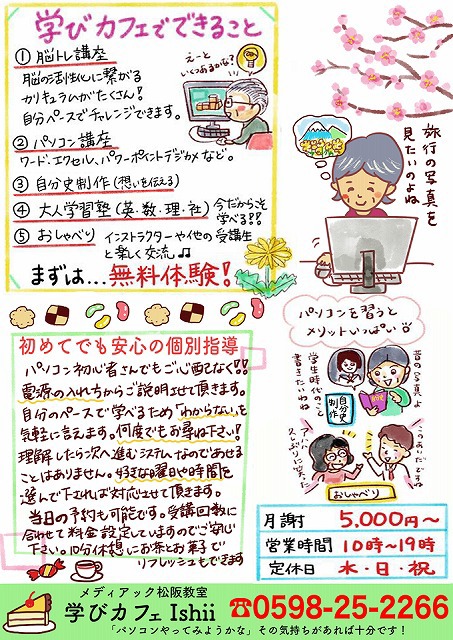 学びカフェでできること
① 脳トレ講座
脳の活性化に繋がる
カリキュラムがたくさん!
自分ペースでチャレンジできます。
えーと
いくつあるかな?
② パソコン講座
ワード、エクセル、パワーポイントデジカメなど。
③ 自分史制作(想いを伝える)
④ 大人学習塾(英・数・理・社)
今だからこそ
学べる!!
⑤ おしゃべり
インストラクターや他の受講生
と楽しく交流♫
まずは…無料体験!
旅行の写真を
見たいのよね
初めてでも安心の個別指導
パソコン初心者さんでもご心配なく!!
電源の入れ方からご説明させて頂きます。
自分のペースで学べるため「わからない」を
気軽に言えます。何度でもお尋ね下さい!
理解したら次へ進むシステムなのであせる
ことはありません。好きな曜日や時間を
選んで下されば対応させて頂きます。
当日の予約も可能です。受講回数に
合わせて料金設定していますのでご安心
下さい。10分休憩にお茶とお菓子で
リフレッシュもできます
パソコンを習うと
メリットいっぱい
昔の写真よ
学生時代のこと
書きたいわね
自分史
制作
アハハ
久しぶりに笑った
このあいだですね
おしゃべり
月謝 5,000円～
営業時間 10時～19時
定休日 水・日・祝
メディアック松阪教室
学びカフェ Ishii
☎0598-25-2266
「パソコンやってみようかな」その気持ちがあれば十分です!